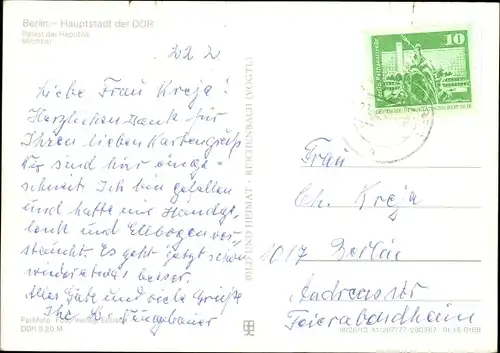 Berlin – Hauptstadt der DDR
Palast der Republik
Milchbar
22 2.
Liebe Frau Kreja!
Herzlichen Dank für
Ihren lieben Kartengruß
Wir sind hier einge-
schneit. Ich bin gefallen
und hatte mir Handge-
lenk und Ellbogen ver-
staucht. Es geht jetzt schon
wieder etwas besser.
Alles Gute und viele Grüße
Ihre
BILD UND HEIMAT · REICHENBACH (VOGTL)
10
DEUTSCHE DEMOKRATISCHE REPUBLIK
Frau
Ch. Kreja
1017 Berlin
Andreasstr
Feierabendheim
Farbfoto:
DDR 0,20 M
01 15 0168